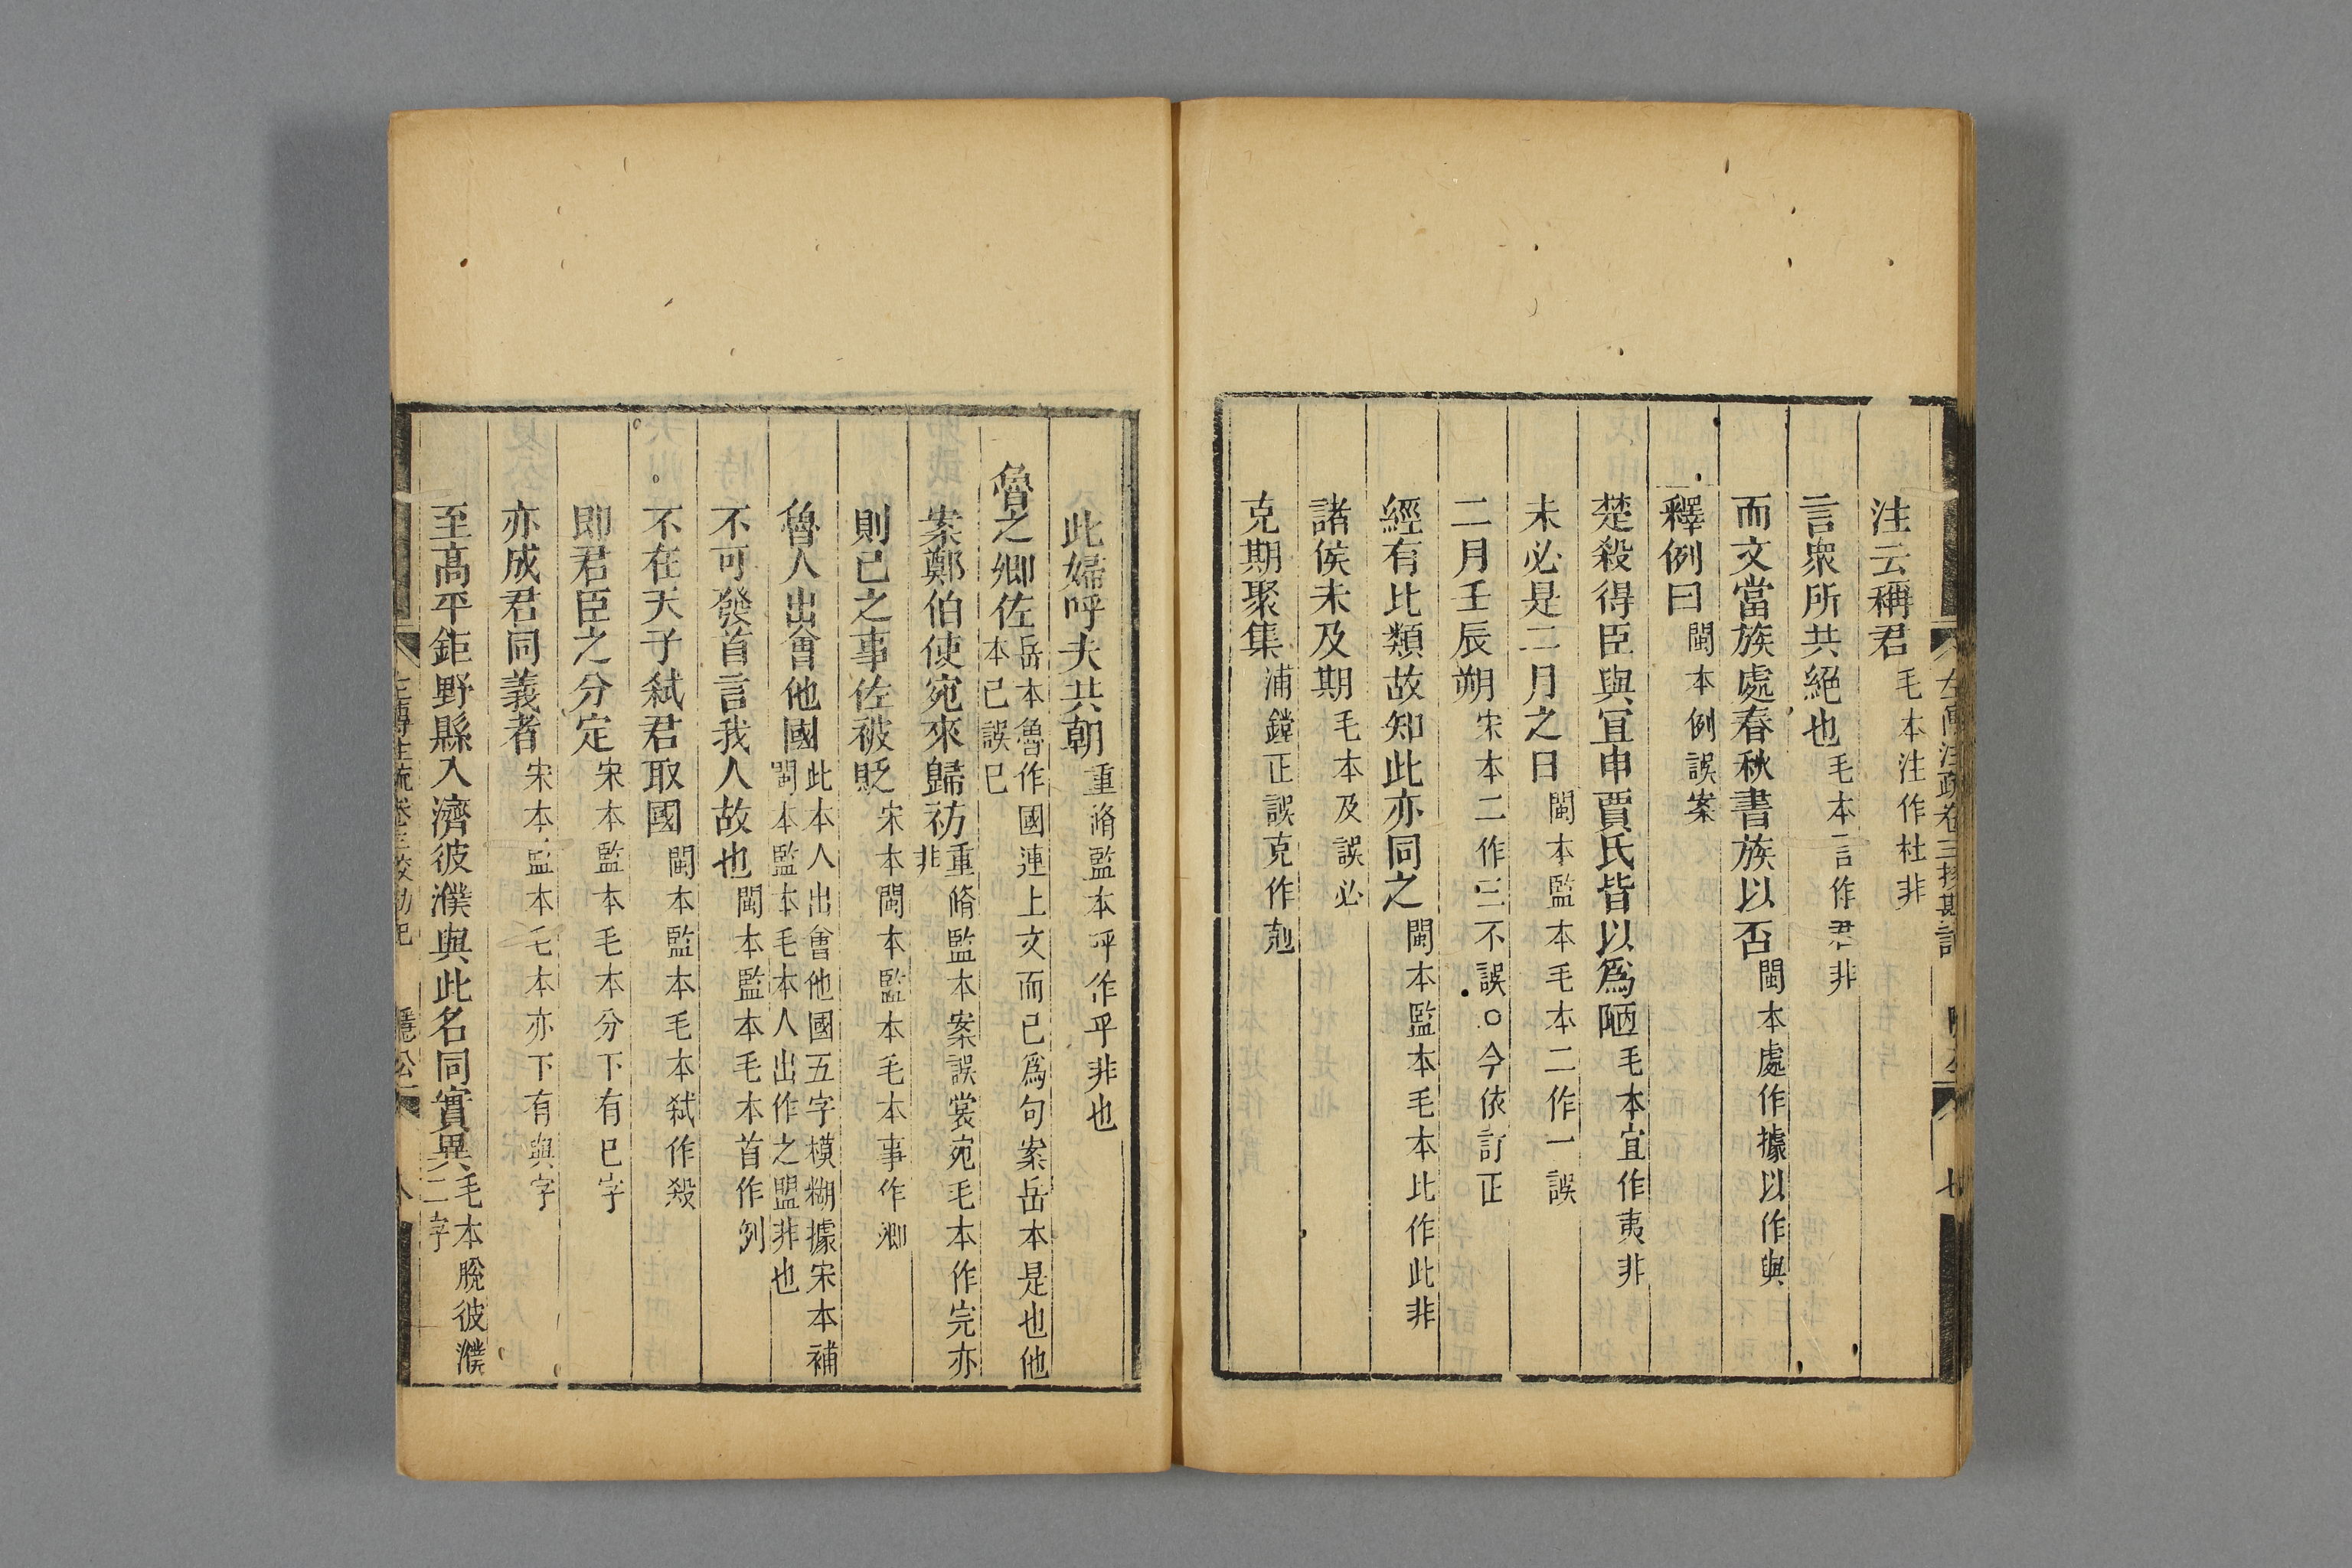 注云稱君毛本注作杜非
言衆所共絕也毛本言作君非
而文當族處春秋書族以否閩本處作據以作與
釋例曰閩本例誤案
楚殺得臣與宜申賈氏皆以爲陋毛本宜作夷非
未必是二月之日閩本監本毛本二作一誤
二月壬辰朔宋本二作三不誤○今依訂正
經有比類故知此亦同之閩本監本毛本比作此非
諸侯未及期毛本及誤必
克期聚集浦鏜正誤克作剋
此婦呼夫共朝重脩監本呼作乎非也
魯之卿佐岳本魯作國連上文而已爲句案岳本是也他本已誤巳
案鄭伯使宛來歸祊重脩監本案誤裳宛毛本作完亦非
則已之事佐被貶宋本閩本監本毛本事作卿
魯人出會他國此本人出會他國五字模糊據宋本補閩本監本毛本人出作之盟非也
不可發首言我人故也閩本監本毛本首作例
不在天子弑君取國閩本監本毛本弑作殺
即君臣之分定宋本監本毛本分下有已字
亦成君同義者宋本監本毛本亦下有與字
至高平鉅野縣入濟彼濮與此名同實異毛本脫彼濮二字